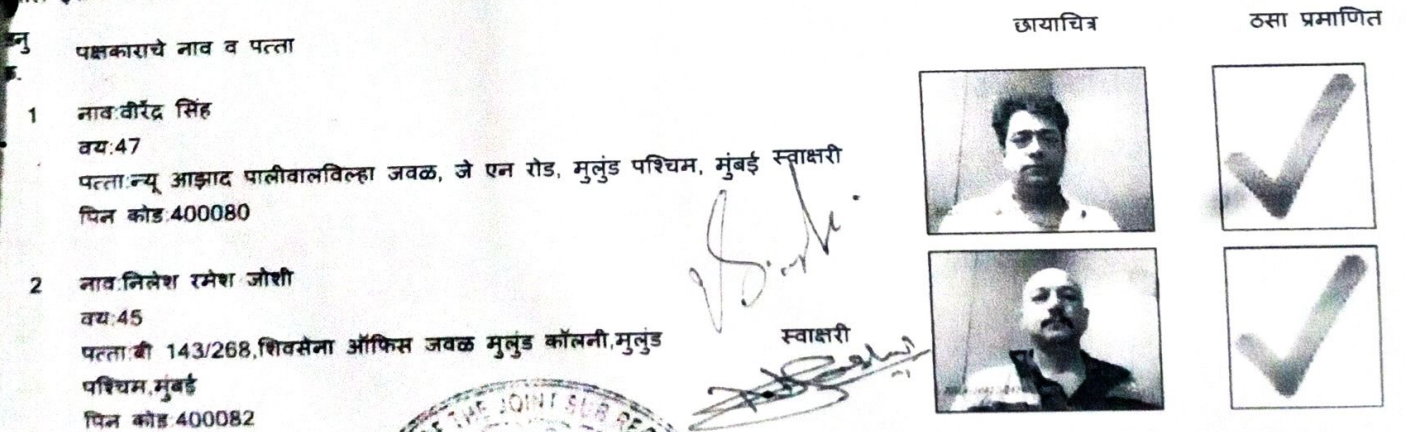 अनु
क्र.
पक्षकाराचे नाव व पत्ता
छायाचित्र
ठसा प्रमाणित
1
नाव:वीरेंद्र सिंह
वय:47
पत्ता:न्यू आझाद पालीवालविल्हा जवळ, जे एन रोड, मुलुंड पश्चिम, मुंबई
पिन कोड:400080
स्वाक्षरी
2
नाव:निलेश रमेश जोशी
वय:45
पत्ता:बी 143/268,शिवसेना ऑफिस जवळ मुलुंड कॉलनी,मुलुंड
पश्चिम,मुंबई
पिन कोड:400082
स्वाक्षरी
THE JOINT SUB REG